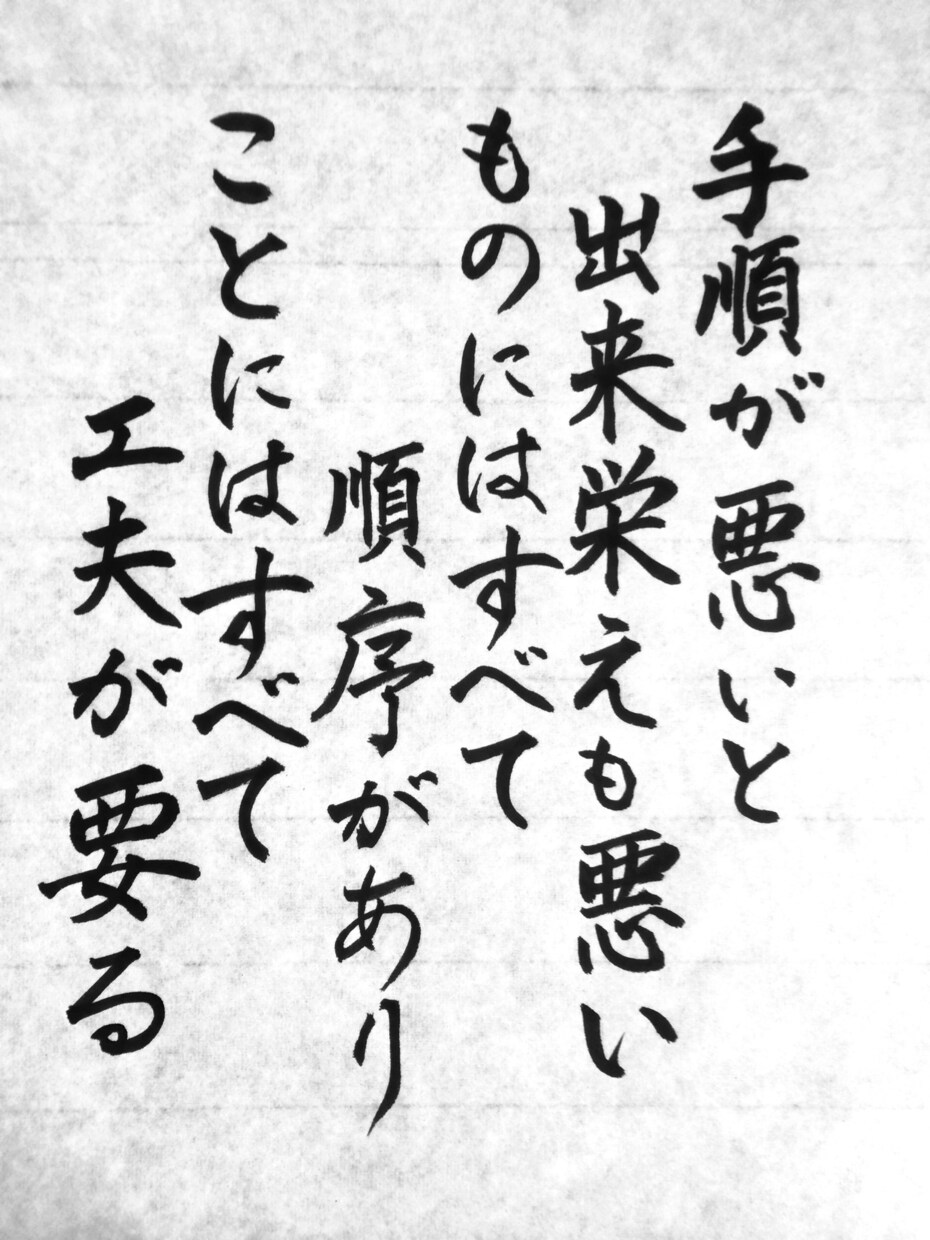 手順が悪いと
出来栄えも悪い
ものにはすべて
順序があり
ことにはすべて
工夫が要る